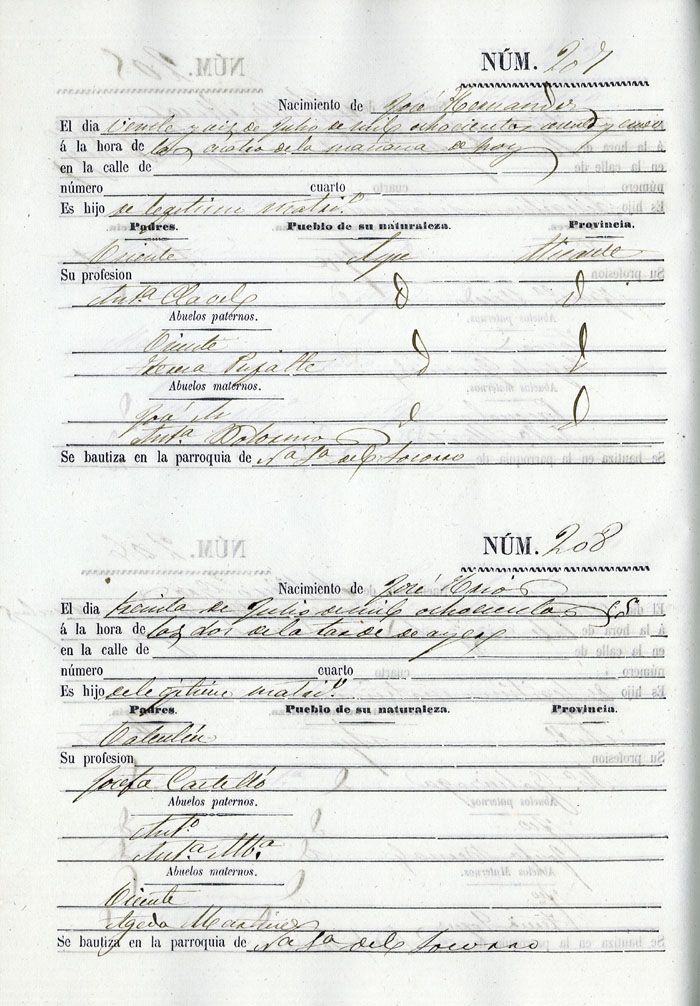 NÚM. 207
Nacimiento de José Hernandez
El dia veinte y seis de Julio de mil ochocientos
á la hora de las cuatro de la mañana de hoy
en la calle de
número cuarto
Es hijo de legitimo matri.º
Padres. Pueblo de su naturaleza. Provincia.
Vicente Aspe Alicante
Su profesion
Ant.ª Clavel
Abuelos paternos.
Vicente
Teresa Pujalte
Abuelos maternos.
José M
Ant.ª
Se bautiza en la parroquia de N.ª S.ª del Socorro
NÚM. 208
Nacimiento de José
El dia treinta de Julio de mil ochocientos
á la hora de las dos de la tarde de ayer
en la calle de
número cuarto
Es hijo de legitimo matri.º
Padres. Pueblo de su naturaleza. Provincia.
Valentin
Su profesion
Josefa Castelló
Abuelos paternos.
Ant.º
Ant.ª
Abuelos maternos.
Vicente
Ageda Martinez
Se bautiza en la parroquia de N.ª S.ª del Socorro